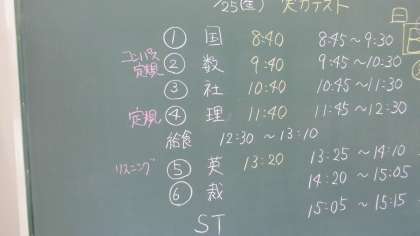 /25(金) 実力テスト
① 国 8:40 8:45～9:30
コンパス 定規 ② 数 9:40 9:45～10:30
③ 社 10:40 10:45～11:30
定規 ④ 理 11:40 11:45～12:30
給食 12:30～13:10
リスニング ⑤ 英 13:20 13:25～14:10
⑥ 裁 14:20～15:05
ST 15:05～15:15